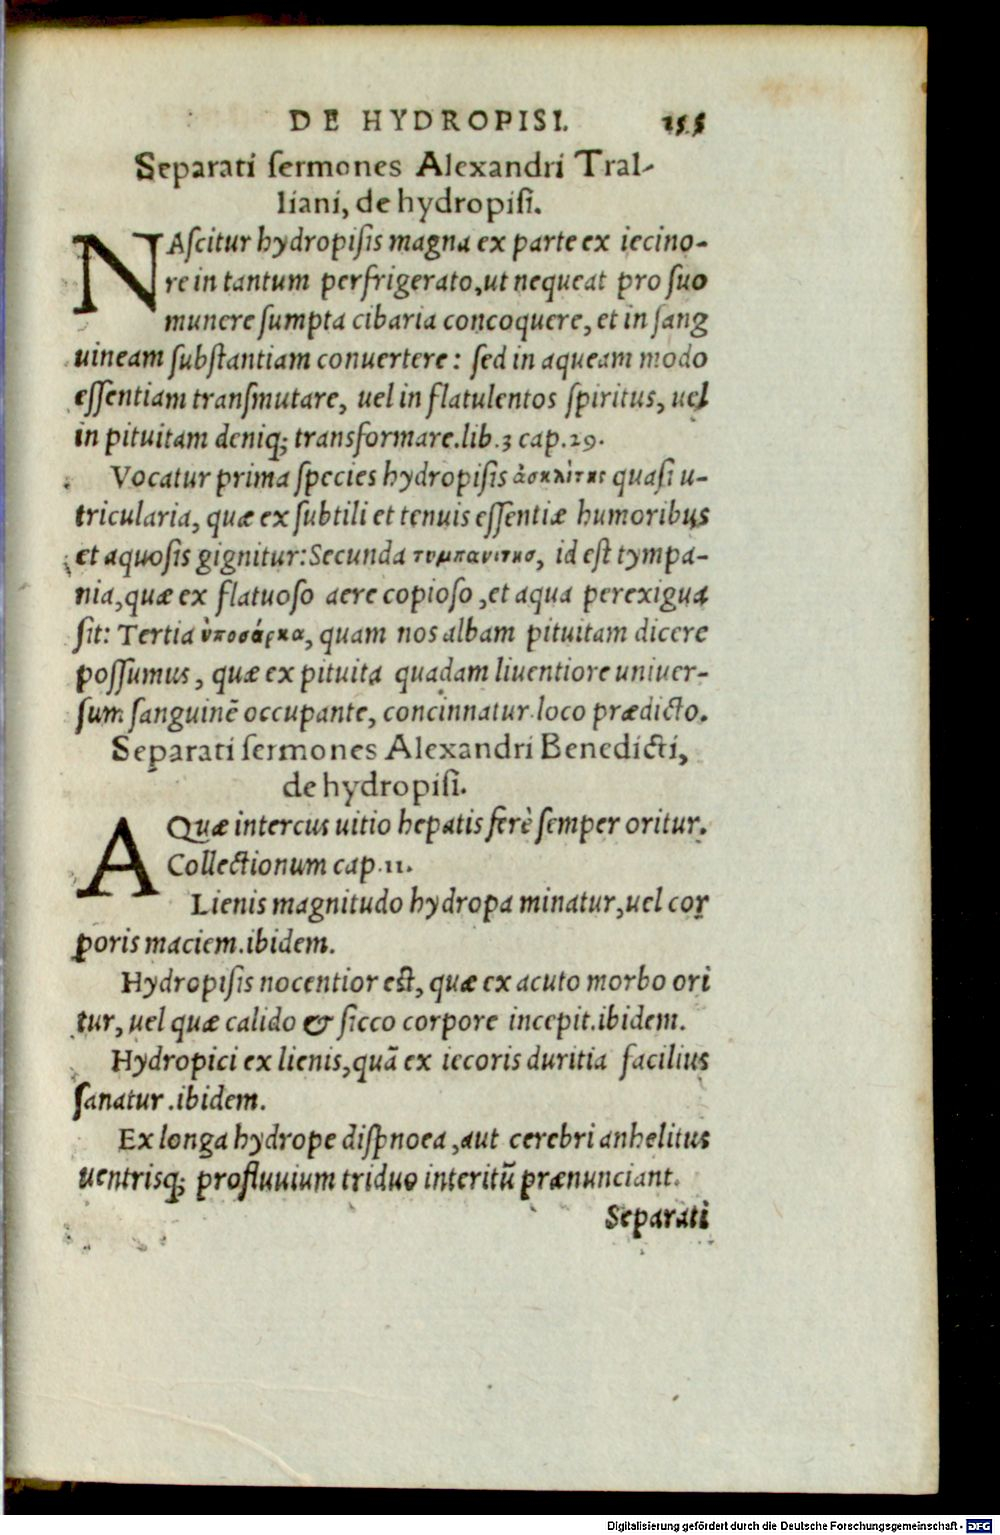 DE HYDROPISI. 155
Separati sermones Alexandri Tral-
liani, de hydropisi.
NAſcitur hydropiſis magna ex parte ex iecino-
re in tantum perfrigerato, ut nequeat pro ſuo
munere ſumpta cibaria concoquere, et in ſang
uineam ſubſtantiam conuertere: ſed in aqueam modo
eſſentiam tranſmutare, uel in flatulentos ſpiritus, uel
in pituitam deniq; transformare. lib. 3 cap. 29.
Vocatur prima ſpecies hydropiſis ἀσκλίτης quaſi u-
tricularia, quæ ex ſubtili et tenuis eſſentiæ humoribus
et aquoſis gignitur: Secunda τυμπανιτησ, id eſt tympa-
nia, quæ ex flatuoſo aere copioſo, et aqua perexigua
ſit: Tertia ὑποσάρκα, quam nos albam pituitam dicere
poſſumus, quæ ex pituita quadam liuentiore uniuer-
ſum ſanguinē occupante, concinnatur loco prædicto.
Separati ſermones Alexandri Benedicti,
de hydropiſi.
AQuæ intercus uitio hepatis ferè ſemper oritur.
Collectionum cap. 11.
Lienis magnitudo hydropa minatur, uel cor
poris maciem. ibidem.
Hydropiſis nocentior eſt, quæ ex acuto morbo ori
tur, uel quæ calido & ſicco corpore incepit. ibidem.
Hydropici ex lienis, quā ex iecoris duritia facilius
ſanatur. ibidem.
Ex longa hydrope diſpnoea, aut cerebri anhelitus
uentrisq; profluuium triduo interitū prænunciant.
Separati
Digitalisierung gefördert durch die Deutsche Forschungsgemeinschaft - DFG